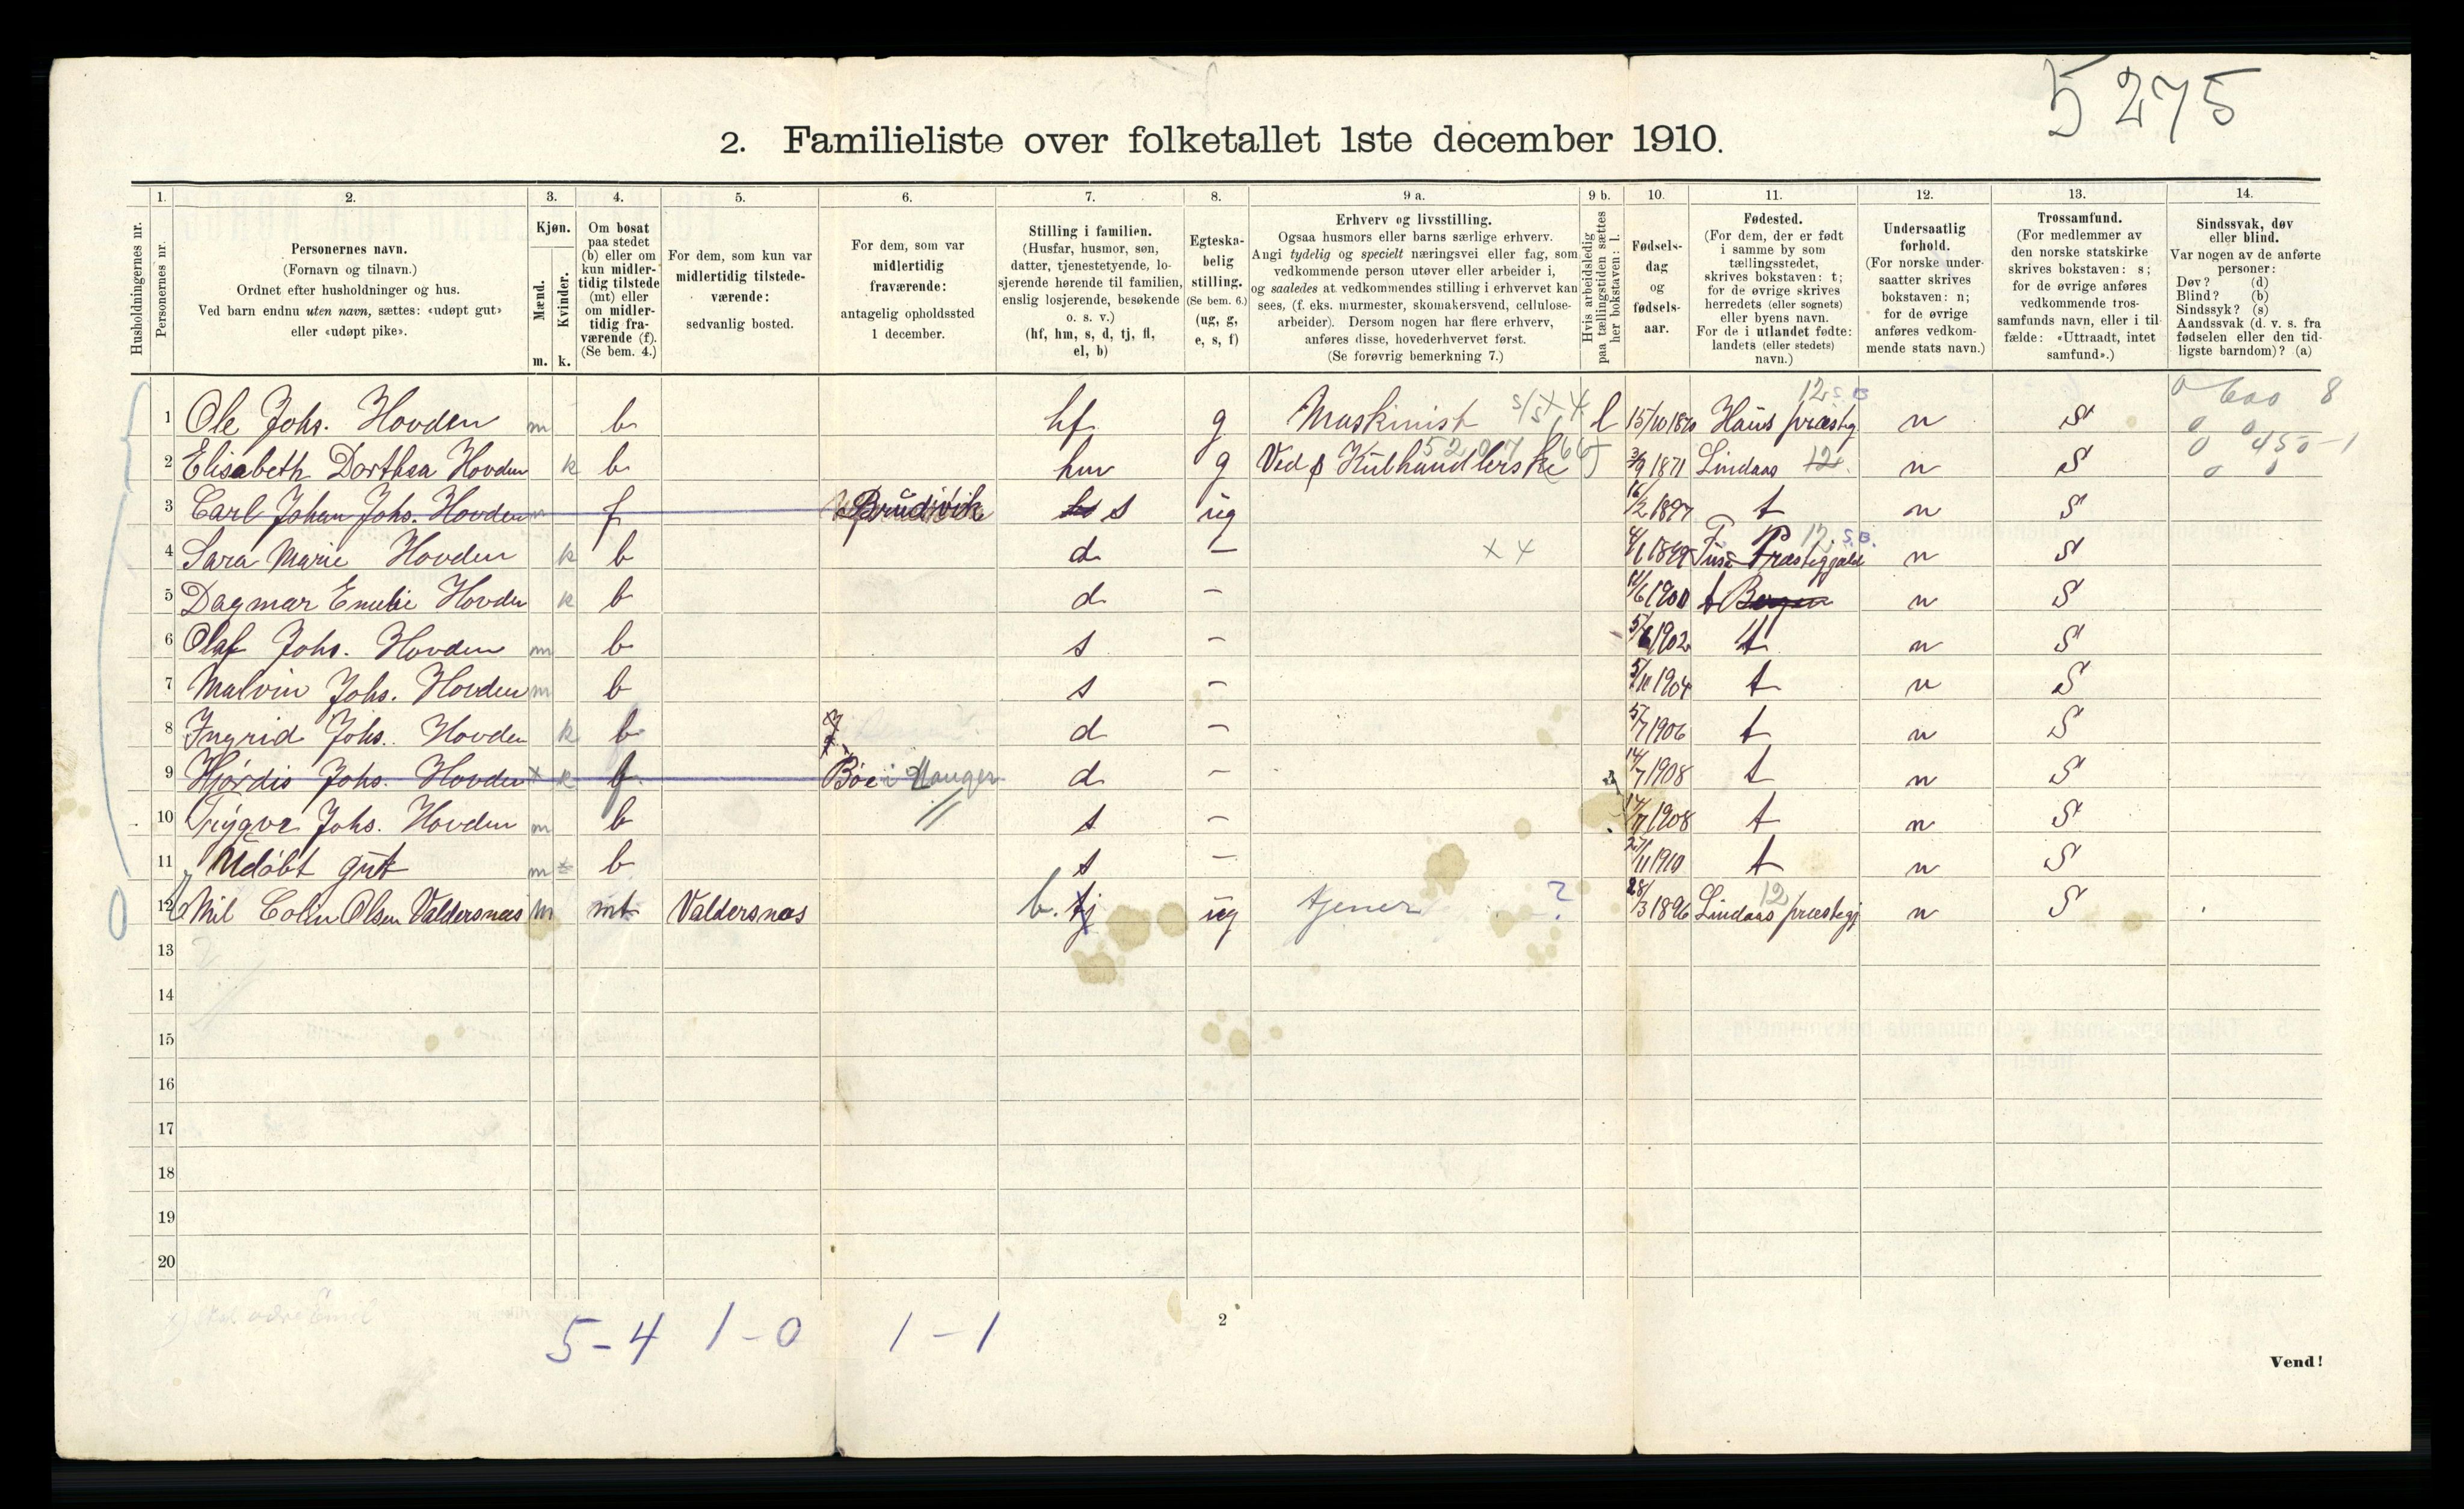 5275
2. Familieliste over folketallet 1ste december 1910.
1. 2. 3. 4. 5. 6. 7. 8. 9 a. 9 b. 10. 11. 12. 13. 14.
Husholdningernes nr.
Personernes nr.
Personernes navn.
(Fornavn og tilnavn.)
Ordnet efter husholdninger og hus.
Ved barn endnu uten navn, sættes: «udøpt gut»
eller «udøpt pike».
Kjøn.
Mænd.
Kvinder.
m. k.
Om bosat
paa stedet
(b) eller om
kun midler-
tidig tilstede
(mt) eller
om midler-
tidig fra-
værende (f).
(Se bem. 4.)
For dem, som kun var
midlertidig tilstede-
værende:
sedvanlig bosted.
For dem, som var
midlertidig
fraværende:
antagelig opholdssted
1 december.
Stilling i familien.
(Husfar, husmor, søn,
datter, tjenestetyende, lo-
sjerende hørende til familien,
enslig losjerende, besøkende
o. s. v.)
(hf, hm, s, d, tj, fl,
el, b)
Egteska-
belig
stilling.
(Se bem. 6.)
(ug, g,
e, s, f)
Erhverv og livsstilling.
Ogsaa husmors eller barns særlige erhverv.
Angi tydelig og specielt næringsvei eller fag, som
vedkommende person utøver eller arbeider i,
og saaledes at vedkommendes stilling i erhvervet kan
sees, (f. eks. murmester, skomakersvend, cellulose-
arbeider). Dersom nogen har flere erhverv,
anføres disse, hovederhvervet først.
(Se forøvrig bemerkning 7.)
Hvis arbeidsledig
paa tællingstiden sættes
her bokstaven: l.
Fødsels-
dag
og
fødsels-
aar.
Fødested.
(For dem, der er født
i samme by som
tællingsstedet,
skrives bokstaven: t;
for de øvrige skrives
herredets (eller sognets)
eller byens navn.
For de i utlandet fødte:
landets (eller stedets)
navn.)
Undersaatlig
forhold.
(For norske under-
saatter skrives
bokstaven: n;
for de øvrige
anføres vedkom-
mende stats navn.)
Trossamfund.
(For medlemmer av
den norske statskirke
skrives bokstaven: s;
for de øvrige anføres
vedkommende tros-
samfunds navn, eller i til-
fælde: «Uttraadt, intet
samfund».)
Sindssvak, døv
eller blind.
Var nogen av de anførte
personer:
Døv? (d)
Blind? (b)
Sindssyk? (s)
Aandssvak (d. v. s. fra
fødselen eller den tid-
ligste barndom)? (a)
1 Ole Johs. Hovden m b hf g Maskinist l 15/10 1870 Haus præstg 12 S.B n S 600 8
2 Elisabeth Dorthea Hovden k b hm g Ved & Kulhandlerske 3/9 1871 Lindaas 12 n S 450-1
3 Carl Johan Johs. Hovden m f s ug 16/2 1897 t n S
4 Sara Marie Hovden k b d - x 4 4/1 1899 Fuse Præstegjæld 12. S.B. n S
5 Dagmar Emelie Hovden k b d - 11/6 1900 t Bergen n S
6 Olaf Johs. Hovden m b s - 5/6 1902 t n S
7 Malvin Johs. Hovden m b s - 5/11 1904 t n S
8 Ingrid Johs. Hovden k b d - 5/7 1906 t n S
9 Hjørdis Johs. Hovden x k f Böe i Manger d - 14/7 1908 t n S
10 Trygve Johs. Hovden m b s - 14/7 1908 t n S
11 Udøbt gut m b s - 27/11 1910 t n S
12 Mil Colin Olsen Valdersnæs m mt Valdersnæs b. tj ug tjener ? 28/3 1896 Lindaas præstegj 12 n S
13
14
15
16
17
18
19
20
5-4 1-0 1-1
2
Vend!